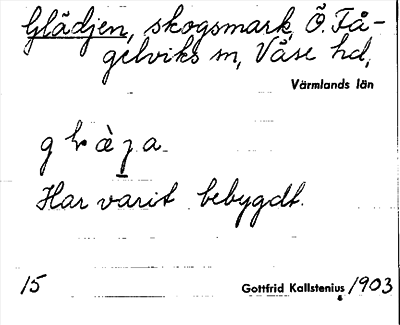 Glädjen, skogsmark, Ö. Få-
gelviks sn, Väse hd,
Värmlands län
Har varit bebygdt.
15 Gottfrid Kallstenius 1903